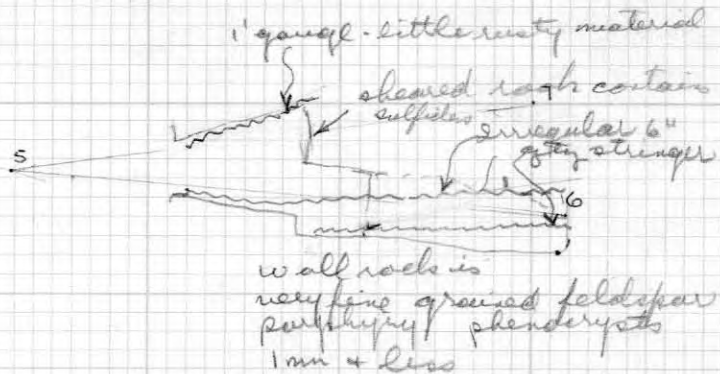 1' gauge - little rusty material
sheared rock contain
sulfides
7
irregular 6"
qtz stringer
5
6
wall rock is
very fine grained feldspar
porphyry phenocrysts
1 mm + less